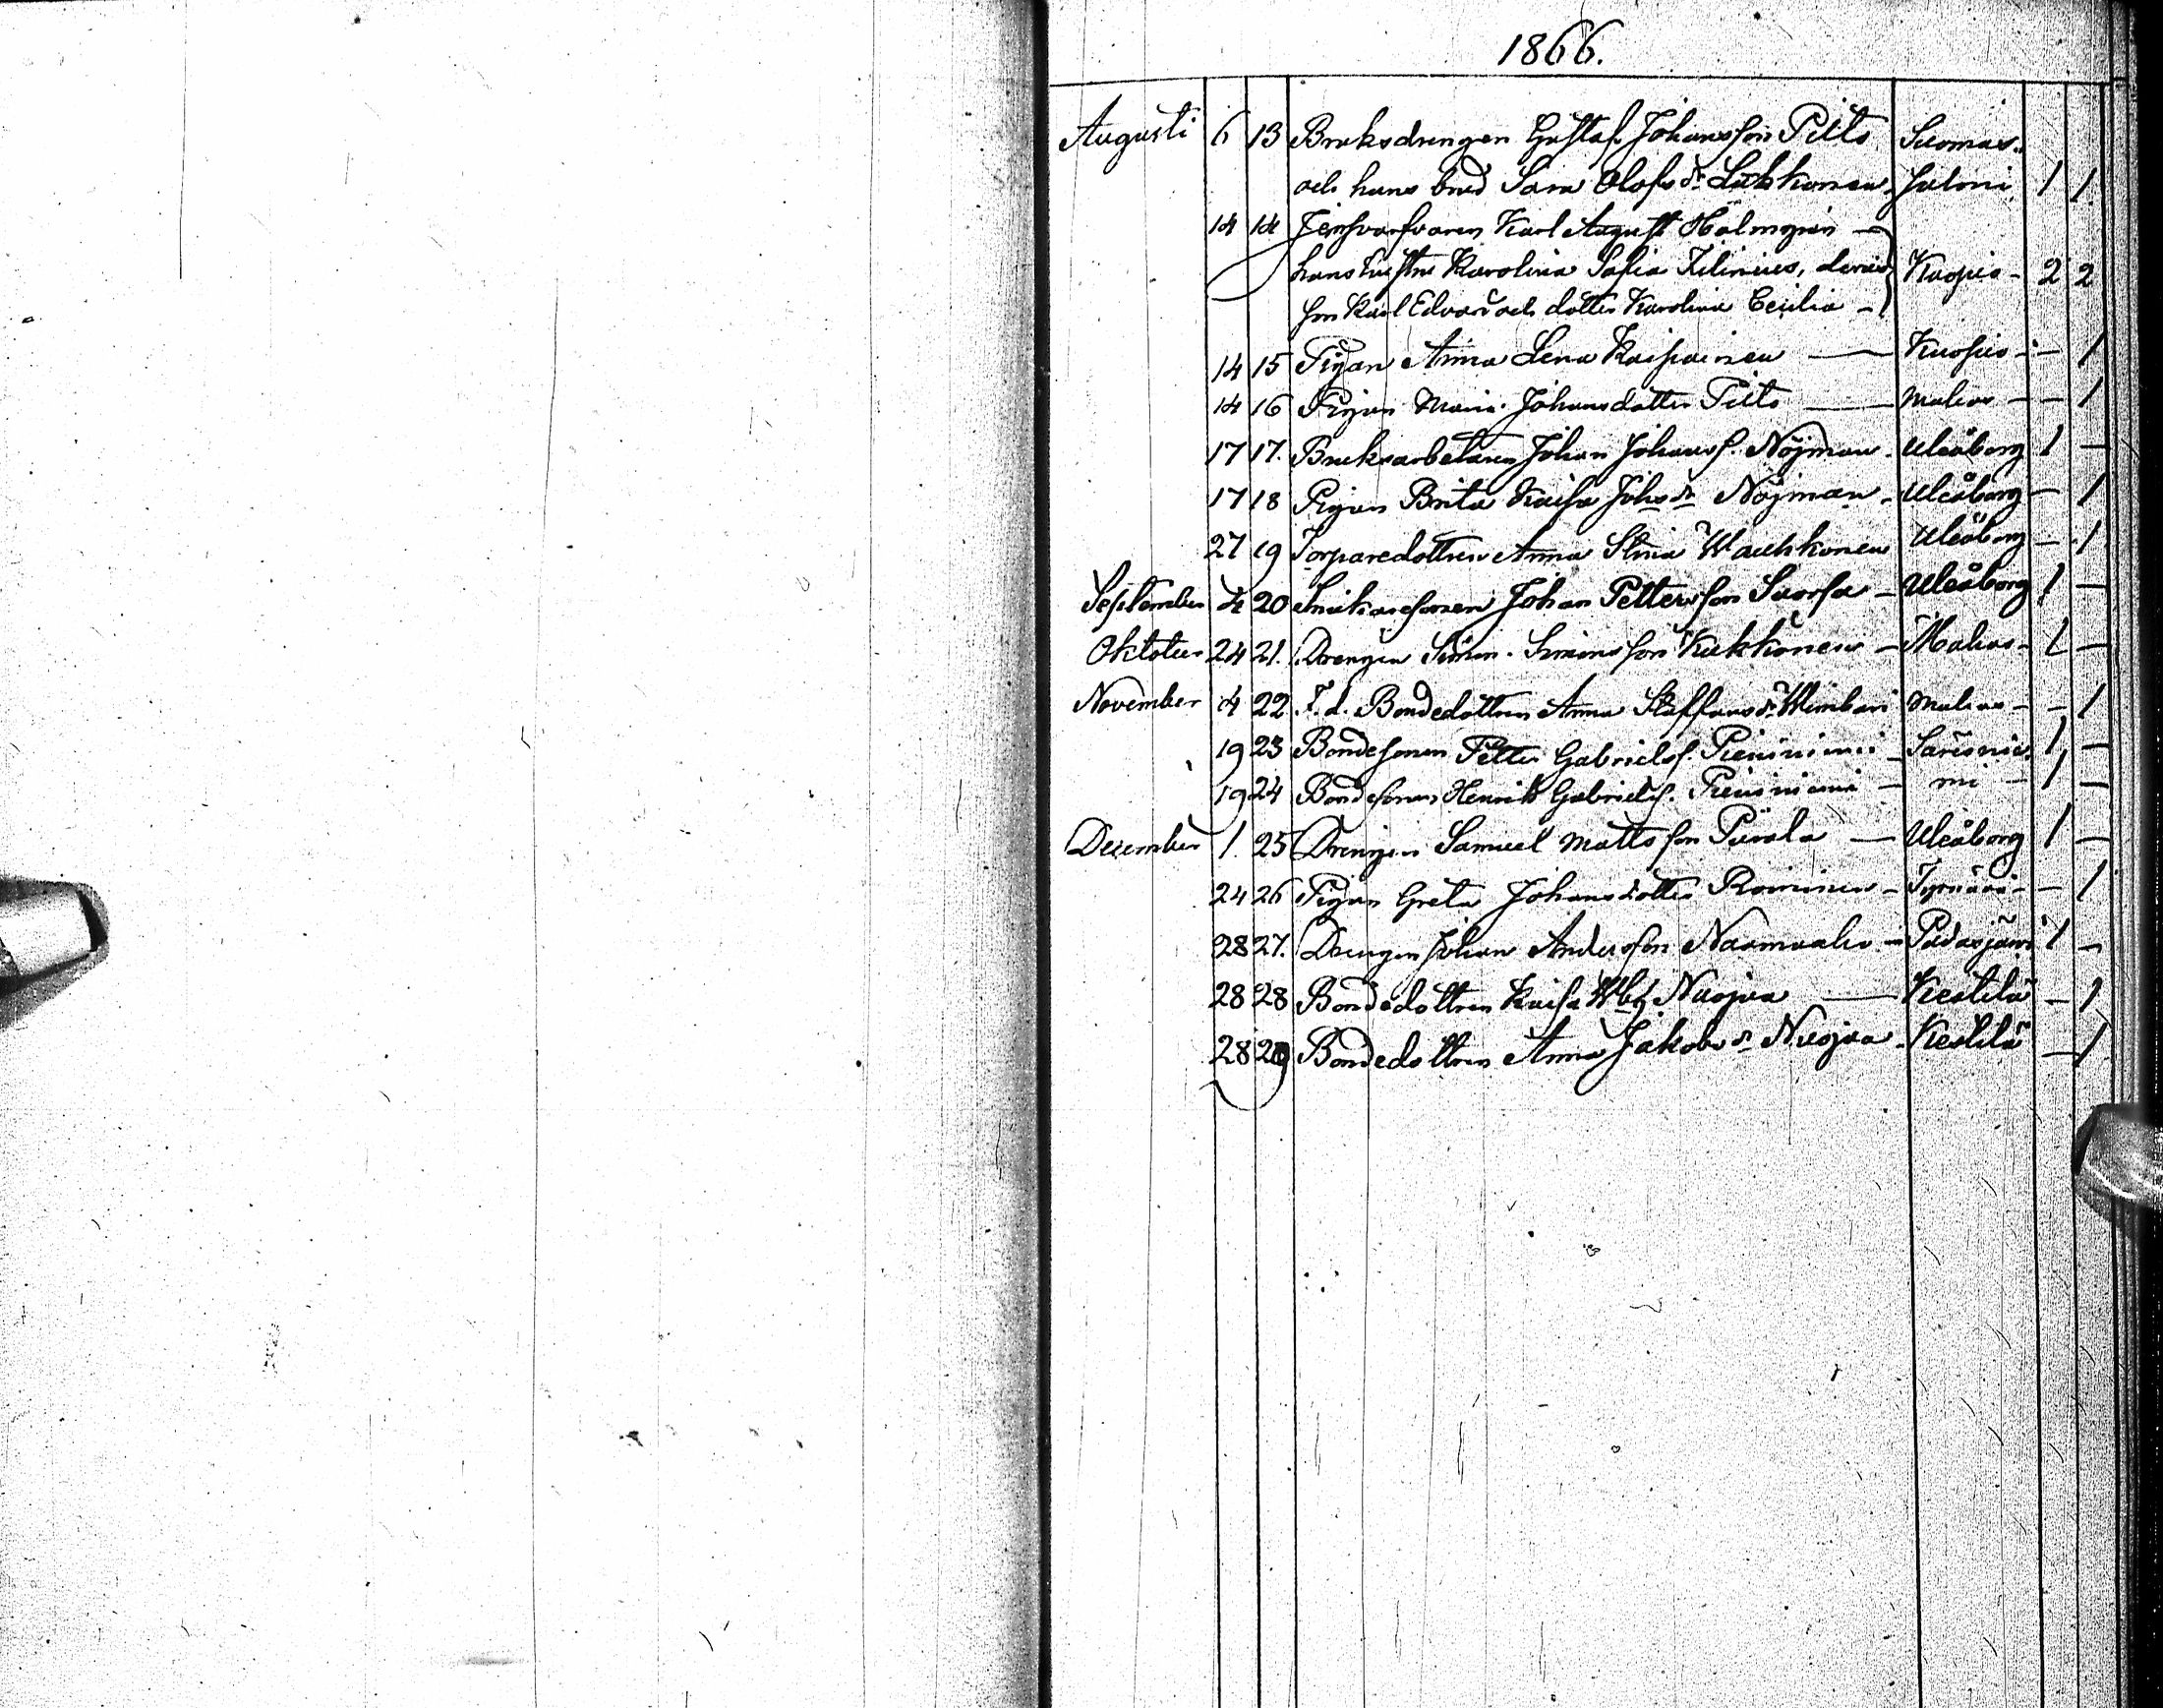 1866.
Augusti 6 13 Bruksdrengen Gustaf Johansson Pilto Suomus-
och hans brud Sara Olofsdr Lukkonen salmi 1 1
14 14 Karl August Holmgrén
hans hustru Karolina Sofia Zilinius, deras Kuopio - 2 2
son Karl Edvard och dotter Karolina Cecilia -
14 15 Pigan Anna Lena Kaipainen Kuopio - - 1
14 16 Pigan Maria Johansdotter Pilto Muhos - - 1
17 17. Bruksarbetaren Johan Johanss. Nöjman. Uleåborg 1 -
17 18 Pigan Brita Kaisa Johsdr Nöjman - Uleåborg - 1
27 19 Torparedottren Anna Stina Wauhkonen Uleåborg - 1
September 4 20 Johan Pettersson Suorsa - Uleåborg 1 -
Oktober 24 21. Drengen Simon Simonsson Kukkonen - Muhos - 1 -
November 4 22. F.d. Bondedottren Anna Staffansdr Wimbari Muhos - - 1
19 23 Bondesonen Petter Gabrielss. Pieniniemi - Säresnie- 1 -
19 24 Bondesonen Henrik Gabrielss. Pieniniemi - mi - 1 -
December 1. 25 Drengen Samuel Mattsson Purola - Uleåborg 1 -
24 26 Pigan Greta Johansdotter Roininen - Tyrnävä - - 1
28 27. Drengen Johan Andersson - Pudasjärvi 1 -
28 28 Bondedottren Kaisa Nuojua Kestilä - 1
28 29 Bondedottren Anna Jakobsdr Nuojua - Kestilä - 1